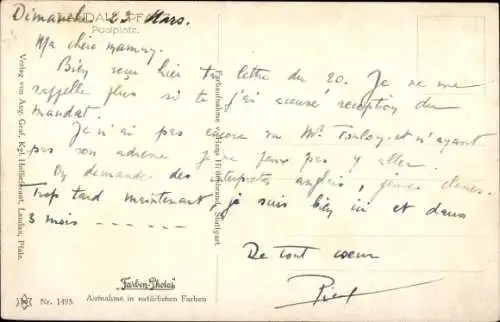 Dimanche 23 Mars.
LANDAU PFALZ
Postplatz.
Ma chère mamny,
Bien reçu hier ta lettre du 20. Je ne me
rappelle plus si je t'ai accusé réception du
mandat.
Je n'ai pas encore vu Mr et n'ayant
pas son adresse je ne peux pas y aller.
On demande des interprètes anglais, jeunes classes.
Trop tard maintenant, je suis bien ici et dans
3 mois ------
De tout coeur
Verlag von Aug. Graf, Kgl. Hoflieferant, Landau, Pfalz.
Farbaufnahme von Hans Hildenbrand, Stuttgart.
"Farben-Photos"
Nr. 1495. Aufnahme in natürlichen Farben